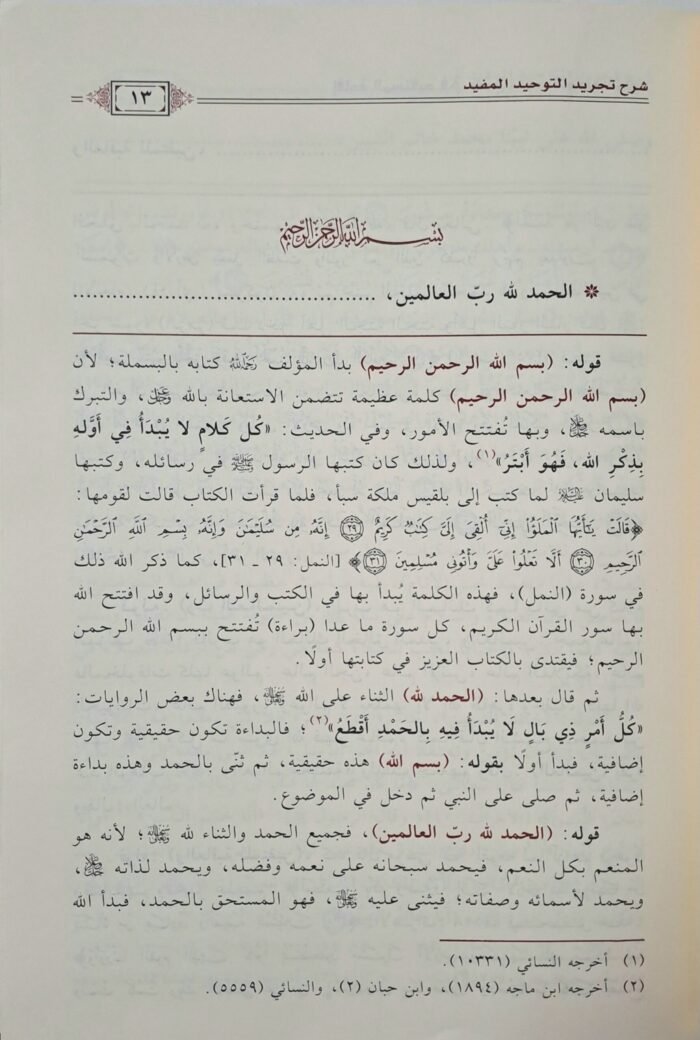 شرح تجريد التوحيد المفيد
١٣
بسم الله الرحمن الرحيم
❊ الحمد لله ربّ العالمين، ............................................
قوله: (بسم الله الرحمن الرحيم) بدأ المؤلف رحمه الله كتابه بالبسملة؛ لأن
(بسم الله الرحمن الرحيم) كلمة عظيمة تتضمن الاستعانة بالله عز وجل، والتبرك
باسمه، وبها تُفتتح الأمور، وفي الحديث: «كُل كَلامٍ لا يُبْدَأُ فِي أوَّلهِ
بِذِكْرِ الله، فَهُوَ أَبْتَرُ»(١)، ولذلك كان كتبها الرسول ﷺ في رسائله، وكتبها
سليمان عليه السلام لما كتب إلى بلقيس ملكة سبأ، فلما قرأت الكتاب قالت لقومها:
﴿قَالَتْ يَٰٓأَيُّهَا ٱلْمَلَؤُا۟ إِنِّىٓ أُلْقِىَ إِلَىَّ كِتَٰبٌ كَرِيمٌ ٢٩ إِنَّهُۥ مِن سُلَيْمَٰنَ وَإِنَّهُۥ بِسْمِ ٱللَّهِ ٱلرَّحْمَٰنِ
ٱلرَّحِيمِ ٣٠ أَلَّا تَعْلُوا۟ عَلَىَّ وَأْتُونِى مُسْلِمِينَ ٣١﴾ [النمل: ٢٩ ـ ٣١]، كما ذكر الله ذلك
في سورة (النمل)، فهذه الكلمة يُبدأ بها في الكتب والرسائل، وقد افتتح الله
بها سور القرآن الكريم، كل سورة ما عدا (براءة) تُفتتح ببسم الله الرحمن
الرحيم؛ فيقتدى بالكتاب العزيز في كتابتها أولًا.
ثم قال بعدها: (الحمد لله) الثناء على الله، فهناك بعض الروايات:
«كُلُّ أَمْرٍ ذِي بَالٍ لَا يُبْدَأُ فِيهِ بِالحَمْدِ أَقْطَعُ»(٢)؛ فالبداءة تكون حقيقية وتكون
إضافية، فبدأ أولًا بقوله: (بسم الله) هذه حقيقية، ثم ثنّى بالحمد وهذه بداءة
إضافية، ثم صلى على النبي ثم دخل في الموضوع.
قوله: (الحمد لله ربّ العالمين)، فجميع الحمد والثناء لله؛ لأنه هو
المنعم بكل النعم، فيحمد سبحانه على نعمه وفضله، ويحمد لذاته،
ويحمد لأسمائه وصفاته؛ فيثنى عليه، فهو المستحق بالحمد، فبدأ الله
(١) أخرجه النسائي (١٠٣٣١).
(٢) أخرجه ابن ماجه (١٨٩٤)، وابن حبان (٢)، والنسائي (٥٥٥٩).